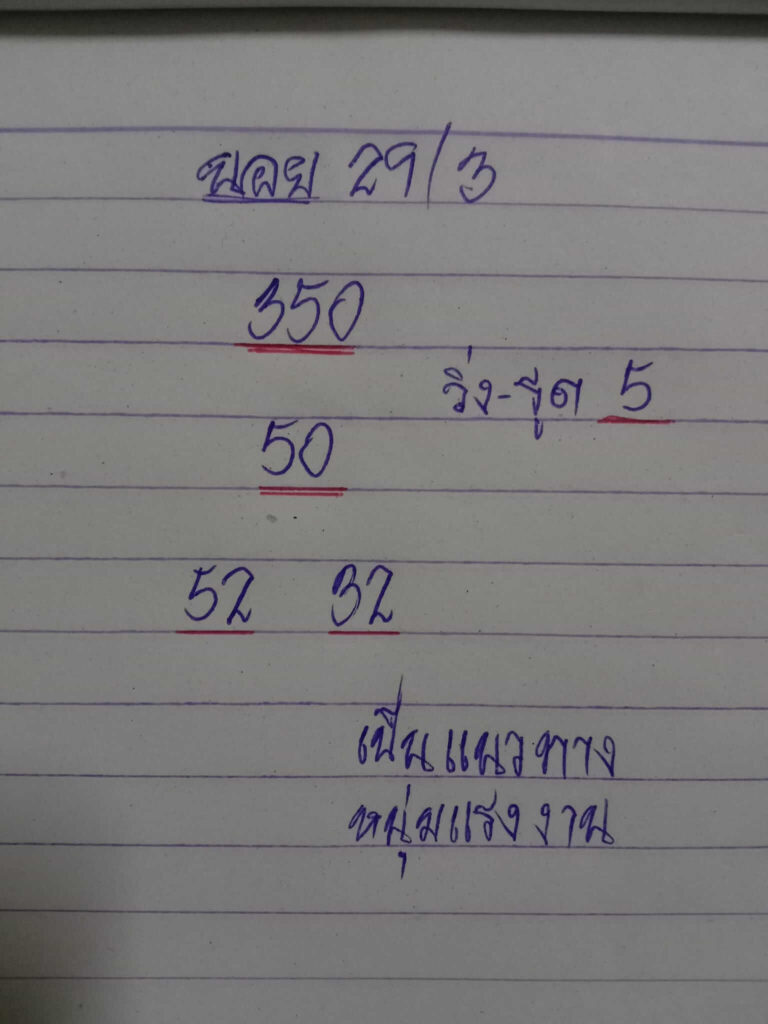 ฮอย 29/3
350
วิ่ง-รูด 5
50
52 32
เป็นแนวทาง
หนุ่มแรงงาน